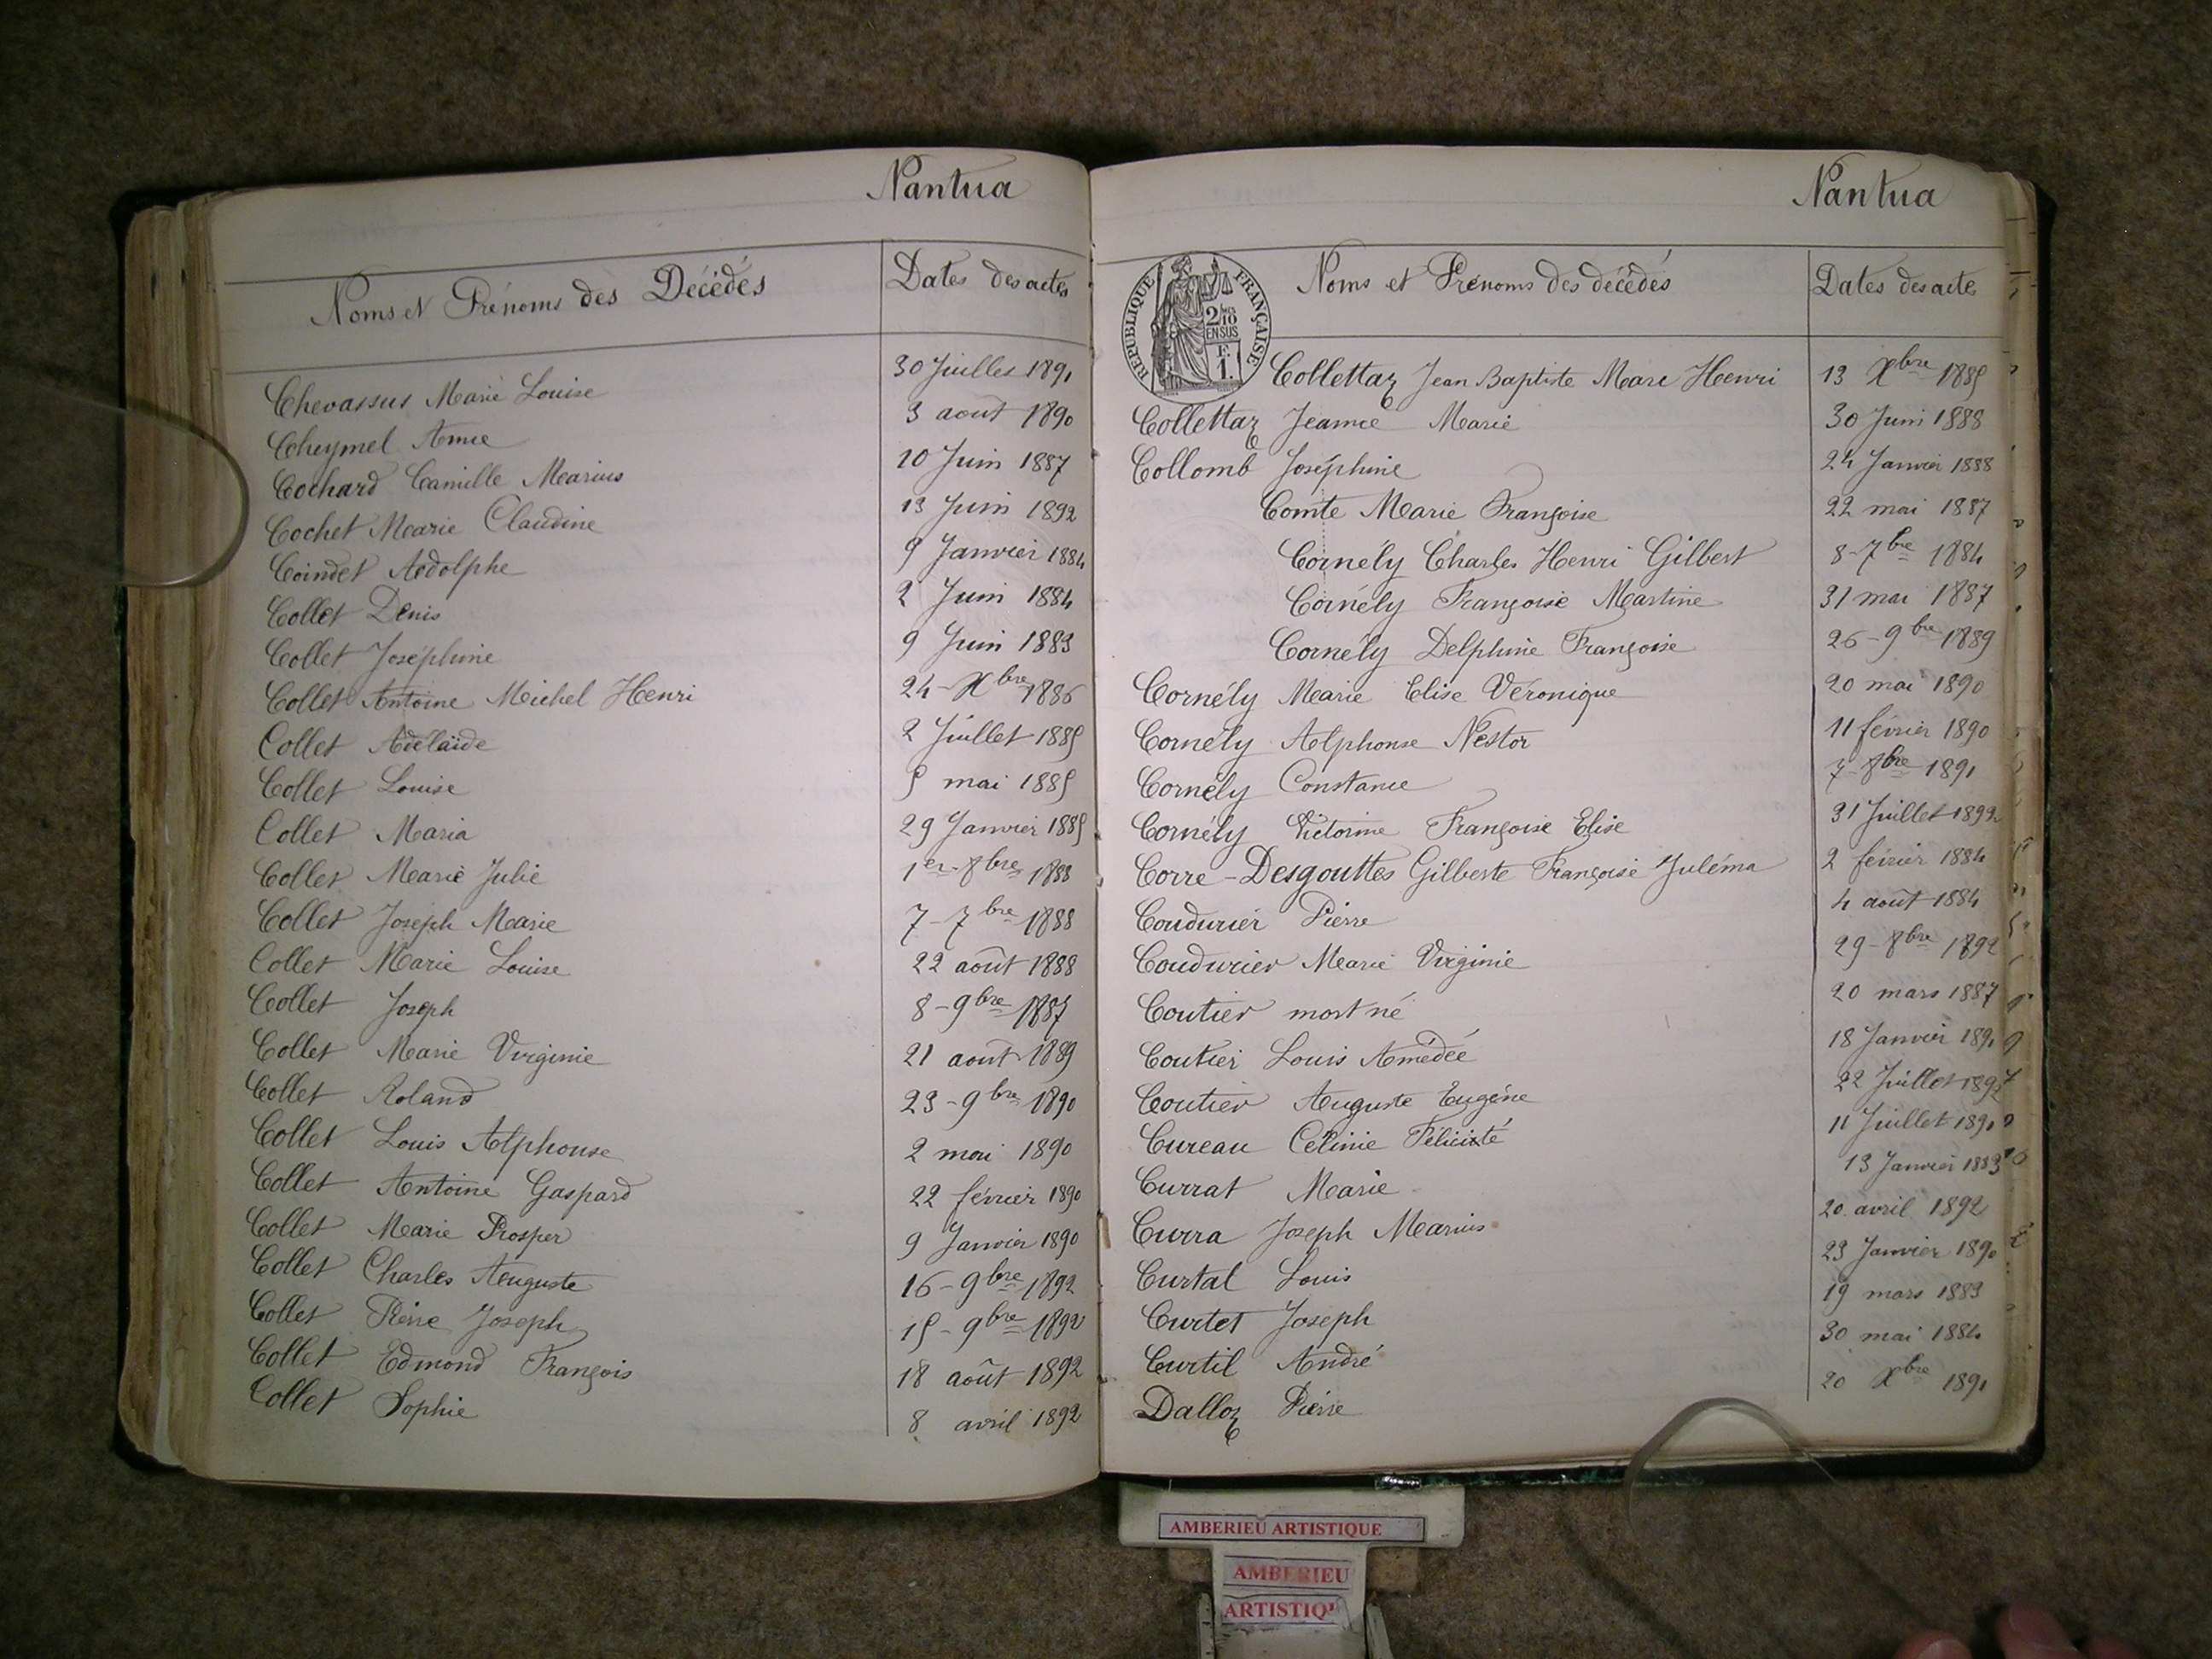 Nantua
Noms et Prénoms des Décédés Dates des actes
Chevassus Marie Louise 30 Juillet 1891
Cheymel Anne 3 août 1890
Cochard Camille Marius 10 Juin 1887
Cochet Marie Claudine 13 Juin 1892
Coindet Adolphe 9 Janvier 1884
Collet Denis 2 Juin 1884
Collet Joséphine 9 Juin 1883
Collet Antoine Michel Henri 24 - Xbre 1886
Collet Adélaïde 2 Juillet 1885
Collet Louise 5 mai 1885
Collet Maria 29 Janvier 1885
Collet Marie Julie 1er - 8bre 1888
Collet Joseph Marie 7 - 7bre 1888
Collet Marie Louise 22 août 1888
Collet Joseph 8 - 9bre 1887
Collet Marie Virginie 21 août 1889
Collet Roland 23 - 9bre 1890
Collet Louis Alphonse 2 mai 1890
Collet Antoine Gaspard 22 février 1890
Collet Marie Prosper 9 Janvier 1890
Collet Charles Auguste 16 - 9bre 1892
Collet Pierre Joseph 15 - 9bre 1892
Collet Edmond François 18 août 1892
Collet Sophie 8 avril 1892
Nantua
REPUBLIQUE FRANÇAISE
2/10 EN SUS
F. 1.
Noms et Prénoms des décédés Dates des actes
Collettaz Jean Baptiste Marc Henri 13 Xbre 1885
Collettaz Jeanne Marie 30 Juin 1888
Collomb Joséphine 24 Janvier 1888
Comte Marie Françoise 22 mai 1887
Cornély Charles Henri Gilbert 8 - 7bre 1884
Cornély Françoise Martine 31 mai 1887
Cornély Delphine Françoise 26 - 9bre 1889
Cornély Marie Elise Véronique 20 mai 1890
Cornély Alphonse Nestor 11 février 1890
Cornély Constance 7 - 8bre 1891
Cornély Victorine Françoise Elise 31 Juillet 1892
Corre - Desgouttes Gilberte Françoise Juléma 2 février 1884
Coudurier Pierre 4 août 1884
Coudurier Marie Virginie 29 - 8bre 1892
Coutier mort né 20 mars 1887
Coutier Louis Amédée 18 Janvier 1891
Coutier Auguste Eugène 22 Juillet
Cureau Célinie Félicité 11 Juillet 1891
Currat Marie 13 Janvier 1883
Curra Joseph Marius 20 avril 1892
Curtal Louis 23 Janvier 1890
Curtet Joseph 19 mars 1883
Curtil André 30 mai 1884
Dalloz Pierre 20 Xbre 1891
AMBERIEU ARTISTIQUE
AMBERIEU
ARTISTIQU